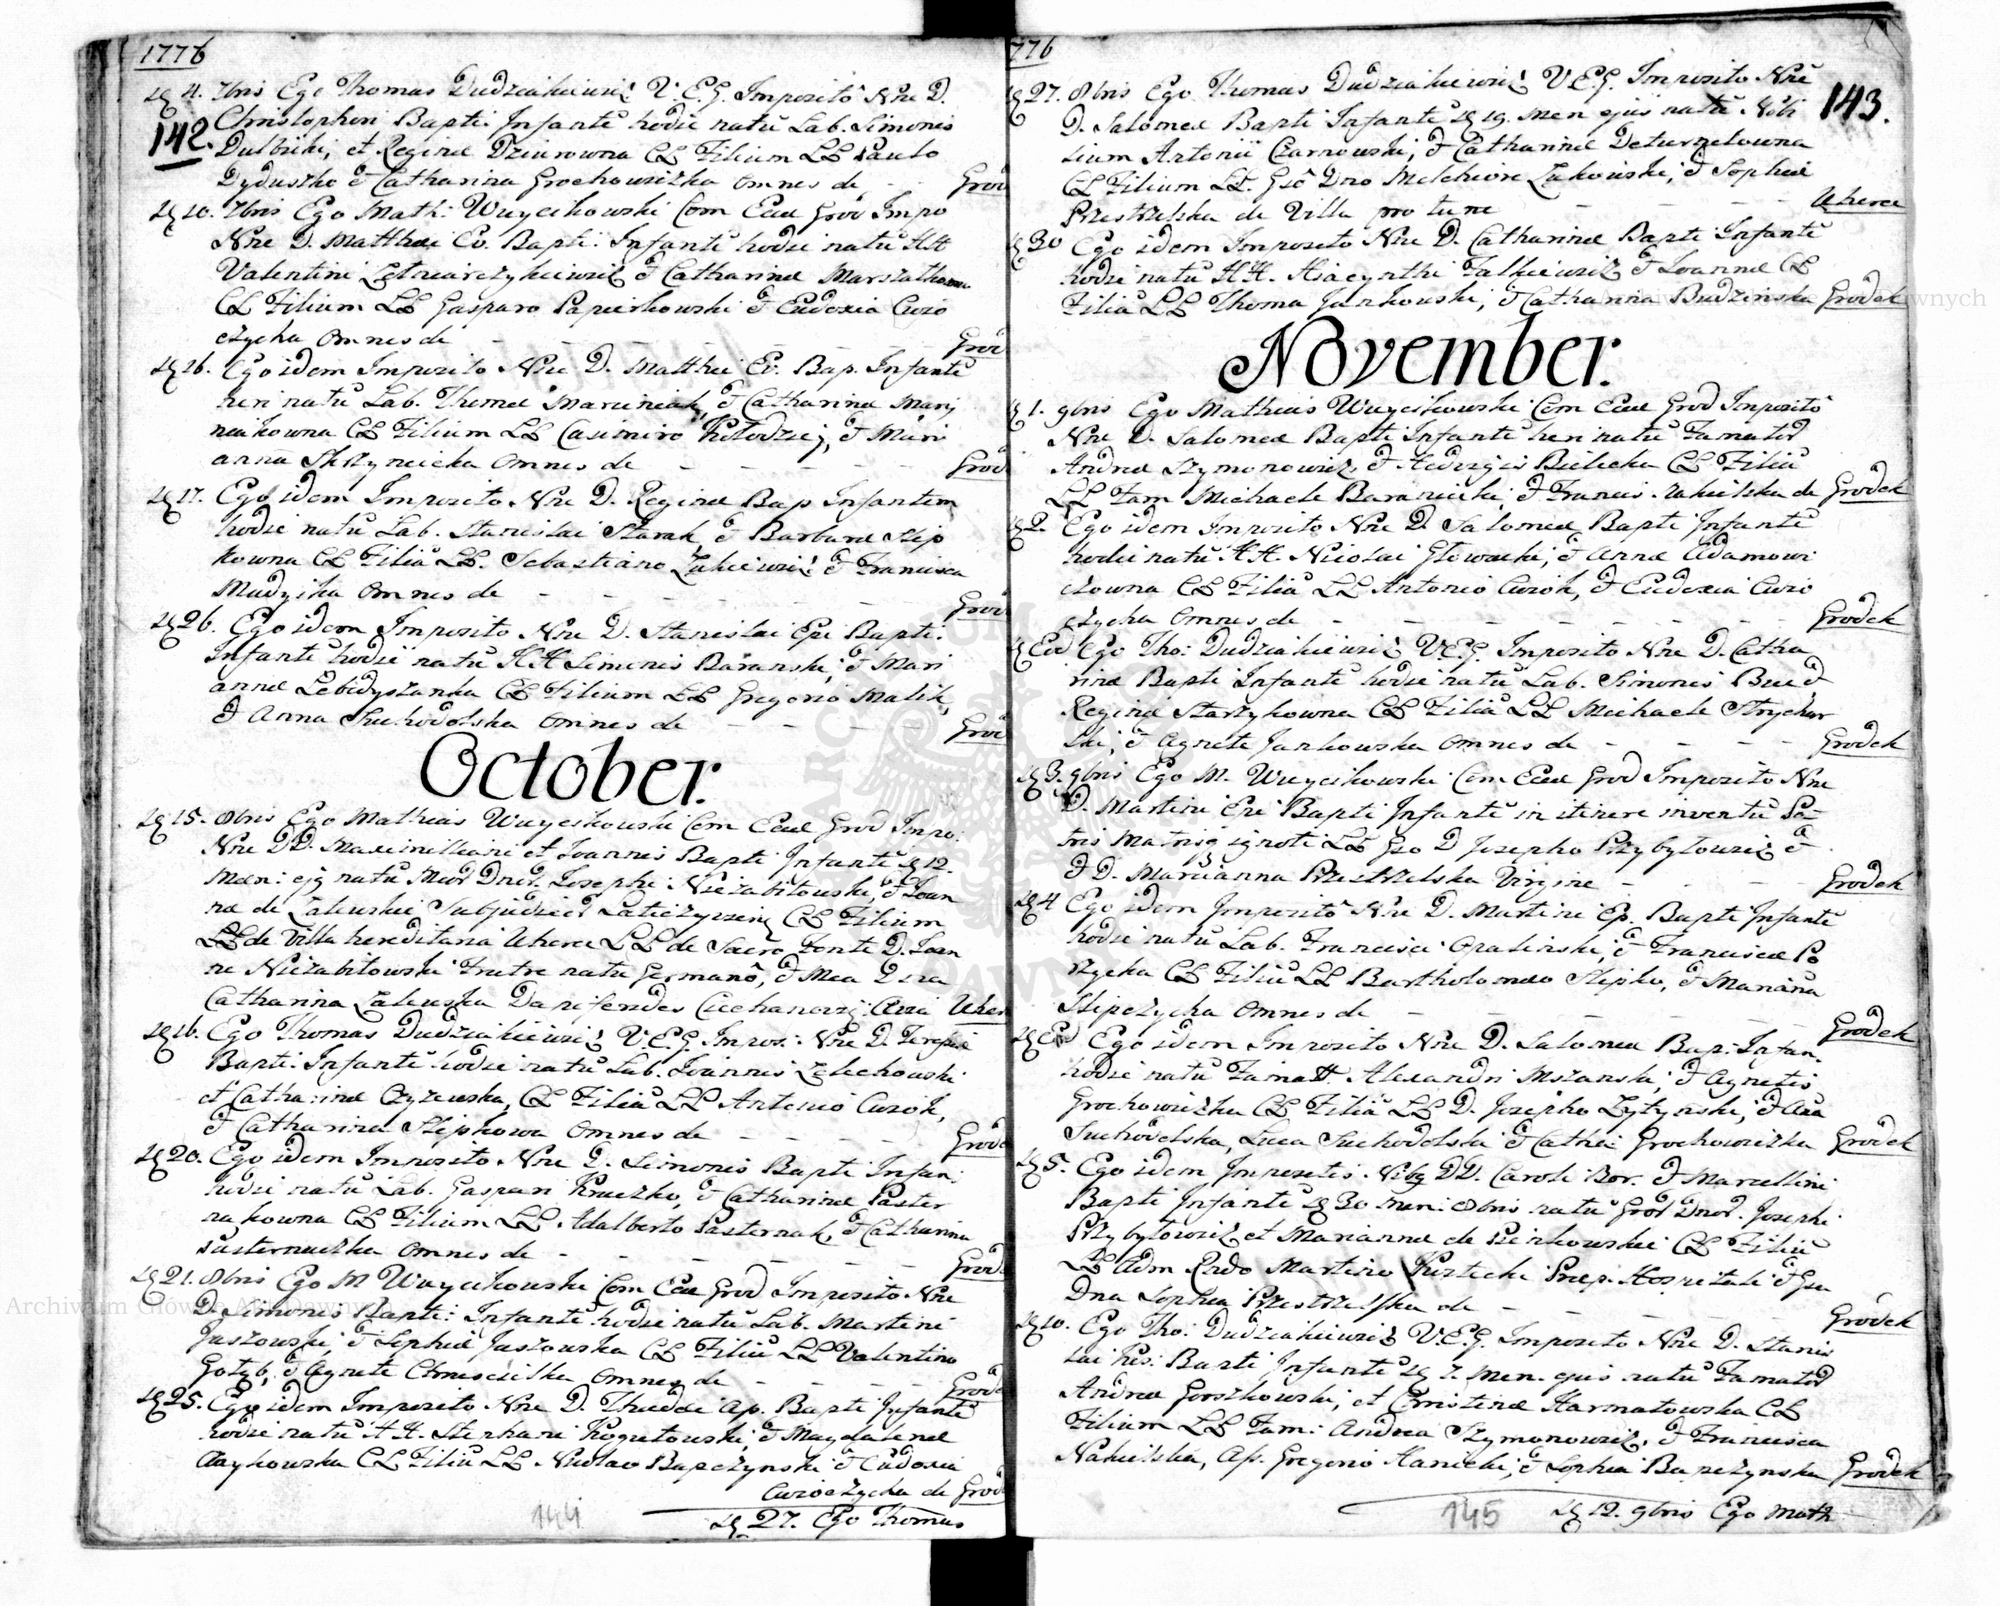 1776
142.
D. 4. 7bris Ego Thomas Dudziakiewicz V. E. G. Imposito Nne D.
Christophori Bapti: Infantē hodie natū Lab. Simonis
Dulbiski, et Reginæ Dziurowna CL Filium LL Paulo
Dyduszko & Catharina Grochowiczka omnes de - - Grod
D. 10. 7bris Ego Math: Wuycikowski Com Ecae Grod Impo
Nne D. Matthæi Ev. Bapti: Infantē hodie natū HH
Valentini & Catharinæ
CL Filium LL Gasparo Papierkowski & Eudoxia Curo
czycka omnes de - - - Grod
D. 16. Ego idem Imposito Nne D. Matthæi Ev. Bap. Infantē
heri natū Lab. Thomæ Marciniak, & Catharinæ Mary
niakowna CL Filium LL Casimiro Kołodziey, & Mari
anna Skrzynicka omnes de - - - Grod
D. 17. Ego idem Imposito Nne D. Reginæ Bap Infantem
hodie natū Lab. Stanislai Starak, & Barbaræ Slip
kowna CL Filiā LL. Sebastiano Zukiewicz & Francisca
Mudyika omnes de - - - Grod
D. 26. Ego idem Imposito Nne D. Stanislai Epi Bapti.
Infantē hodie natū HH Simonis Baranski, & Mari
annæ Lebidyszanka CL Filium LL Gregorio Malik,
& Anna Suchodolska omnes de - - - Grod
October.
D. 15. 8bris Ego Mathias Wuycikowski Com Ecae Grod Impo:
Nne DD. Maximiliani et Joannis Bapti Infantē D. 12.
Men: ejq natū Mcor Dnor. Josephi Niezabitowski, & Joan
næ de Zaleuskie CL Filium
LL de Villa hereditaria Uherce LL de Sacro Fonte D. Joan
ne Niezabitowski Fratre natu Germanō, & Mca Dna
Catharina Zaleuska Uher
D. 16. Ego Thomas Dudziakiewicz V. E. G. Impos: Nne D. Teresiæ
Bapti: Infantē hodie natū Lab. Joannis Zelechowski
et Catharinæ Czyzewska, CL Filiā LL Antonio Curok,
& Catharina Slipkowa omnes de - - - Grod
D. 20. Ego idem Imposito Nne D. Simonis Bapti Infan:
hodie natū Lab. Gaspari Kruczko, & Catharinæ Paster
nakowna CL Filium LL Adalberto Pasternak, & Catharina
Pasternaczka omnes de - - - Grod
D. 21. 8bris Ego M Wuycikowski Com Ecae Grod Imposito Nne
D. Simonis Bapti: Infantē hodie natū Lab. Martini
Juszowski, & Sophiæ Juszowska CL Filiū LL Valentino
Gołąb, & Agnete Chmiscilka omnes de - - - Grod
D. 25. Ego idem Imposito Nne D. Thadæi Ap. Bapti Infantē
hodie natū HH. Stephani Kogutowski, & Magdalenæ
CL Filiū LL Nicolao Bapczynski & Eudoxia
Curoczycka de Grod
144
D. 27. Ego Thomas
776
143.
D. 27. 8bris Ego Thomas Dudziakiewicz V E G. Imposito Nne
D. Salomeæ Bapti Infantē D. 19. Men ejus natū Nobi
lium Antonii Czarnowski, & Catharinæ
CL Filium LL. Gso Dno Melchiore Zukowski, & Sophia
Przestrzelska de Villa pro tunc - - - Uherce
D. 30 Ego idem Imposito Nne D. Catharinæ Bapti Infantē
hodie natū HH. Hiacynthi Falkiewicz & Joannæ CL
Filiā LL Thoma Jankowski, & Catharina Budzinska Grodek
November.
D. 1. 9bris Ego Mathias Wuycikowski Com Ecae Grod Imposito
Nne D. Salomeæ Bapti Infantē heri natū Famator
Andreæ Szymonowicz, & Hedvigis Bielecka CL Filiā
LL Fam Michaele Baraniecki, & Francis. Nakielska de Grodek
D. 2. Ego idem Imposito Nne D Salomeæ Bapti Infantē
hodie natū HH. Nicolai Głowacki, & Annæ Adamowi
czowna CL Filiā LL Antonio Curok, & Eudoxia Curo
czycka omnes de - - - Grodek
D. Eod Ego Tho: Dudziakiewicz V. E. G. Imposito Nne D. Catha
rinæ Bapti Infantē hodie natū Lab. Simonis Buc &
Reginæ Starzykowna CL Filiā LL Michaele Strychar
ski, & Agnete Jankowska omnes de - - - Grodek
D. 3. 9bris Ego M. Wuycikowski Com Ecae Grod Imposito Nne
D. Martini Epi Bapti Infantē in itinere inventū Pa-
tris Matrisq ignoti LL Gso D Josepho Przybyłowicz &
& D. Marianna Przestrzelska Virgine - - - Grodek
D. 4 Ego idem Imposito Nne D. Martini Ep. Bapti Infantē
hodie natū Lab. Francisci Opalinski, & Franciscæ Po
rzycka CL Filiū LL Bartholomæo Slipko, & Mariāna
Slipczycka omnes de - - - Grodek
D. Eod Ego idem Imposito Nne D. Salomeæ Bap: Infan.
hodie natū Famatt. Alexandri Mszanski, & Agnetis
Grochowiczka CL Filiā LL D. Josepho Zytynski, & Aña
Suchodolska, Luca Suchodolski & Catha: Grochowiczka Grodek
D. 5. Ego idem Impositis Nibq DD. Caroli Bor. & Marcellini
Bapti Infantē D. 30 men: 8bris natū Gror Dnor. Josephi
Przybyłowicz et Mariannæ de Pienkowskie CL Filiū
LL Adm Rndo Martino Kurticki Præp. Hospitali & Gsa
Dna Sophia Przestrzelska de - - - Grodek
D. 10. Ego Tho: Dudziakiewicz V. E. G. Imposito Nne D. Stanis
lai Kos: Bapti Infantē D. 7. Men. ejus natū Famator
Andreæ Gorszkowski, et Christinæ Harmatowska CL
Filium LL Fam: Andrea Szymonowicz, & Francisca
Nakielska, As. Gregorio Hanicki, & Sophia Bapczynska Grodek
145
D. 12. 9bris Ego Math
Archiwum Główne Akt Dawnych